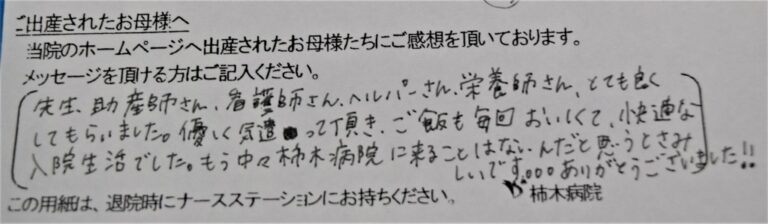 ご出産されたお母様へ
当院のホームページへ出産されたお母様たちにご感想を頂いております。
メッセージを頂ける方はご記入ください。
先生、助産師さん、看護師さん、ヘルパーさん、栄養師さん、とても良く
してもらいました。優しく気遣って頂き、ご飯も毎回おいしくて、快適な
入院生活でした。もう中々柿木病院に来ることはないんだと思うとさみ
しいです。。。ありがとうございました!!
この用紙は、退院時にナースステーションにお持ちください。
柿木病院